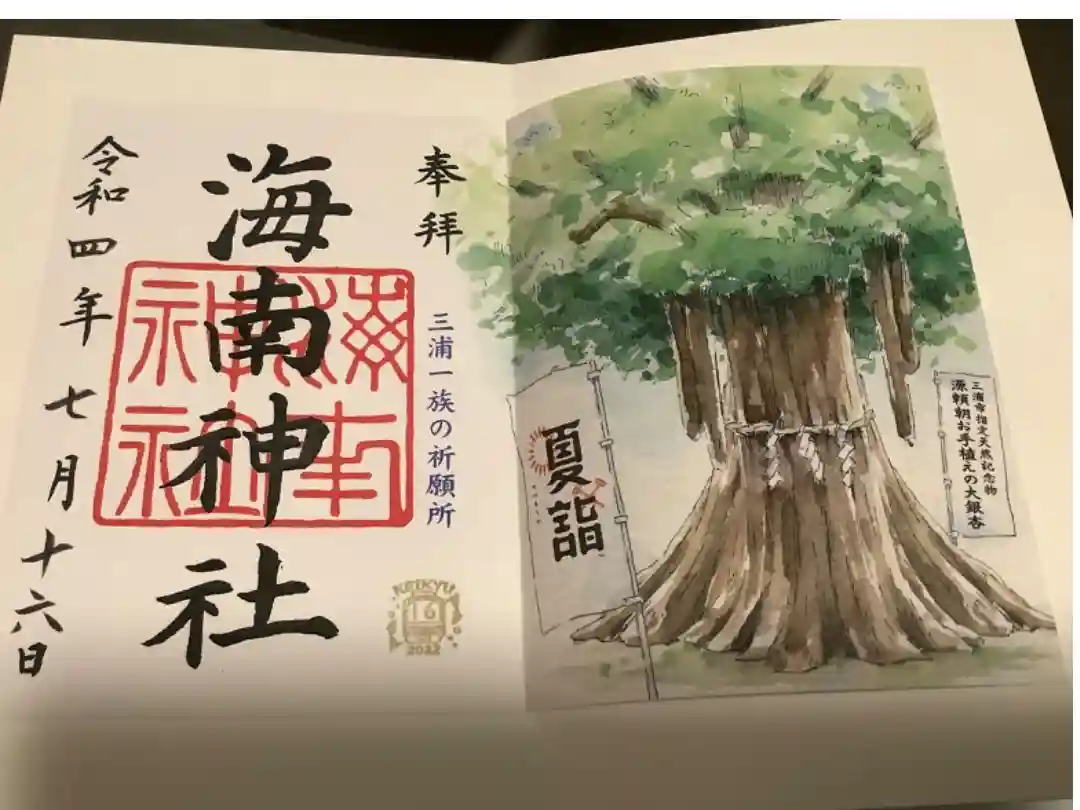 奉拝
三浦一族の祈願所
海南神社
海南神社
令和四年七月十六日
KEIKYU
16
2022
三浦市指定天然記念物
源頼朝お手植えの大銀杏
夏詣